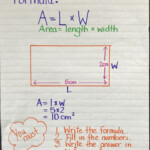 Formula:
A = L × W
Area = length × width
2cm W
5cm
L
A = l x w
= 5 x 2
= 10 cm²
You must
1. Write the formula.
2. Fill in the numbers.
3. Write the answer in